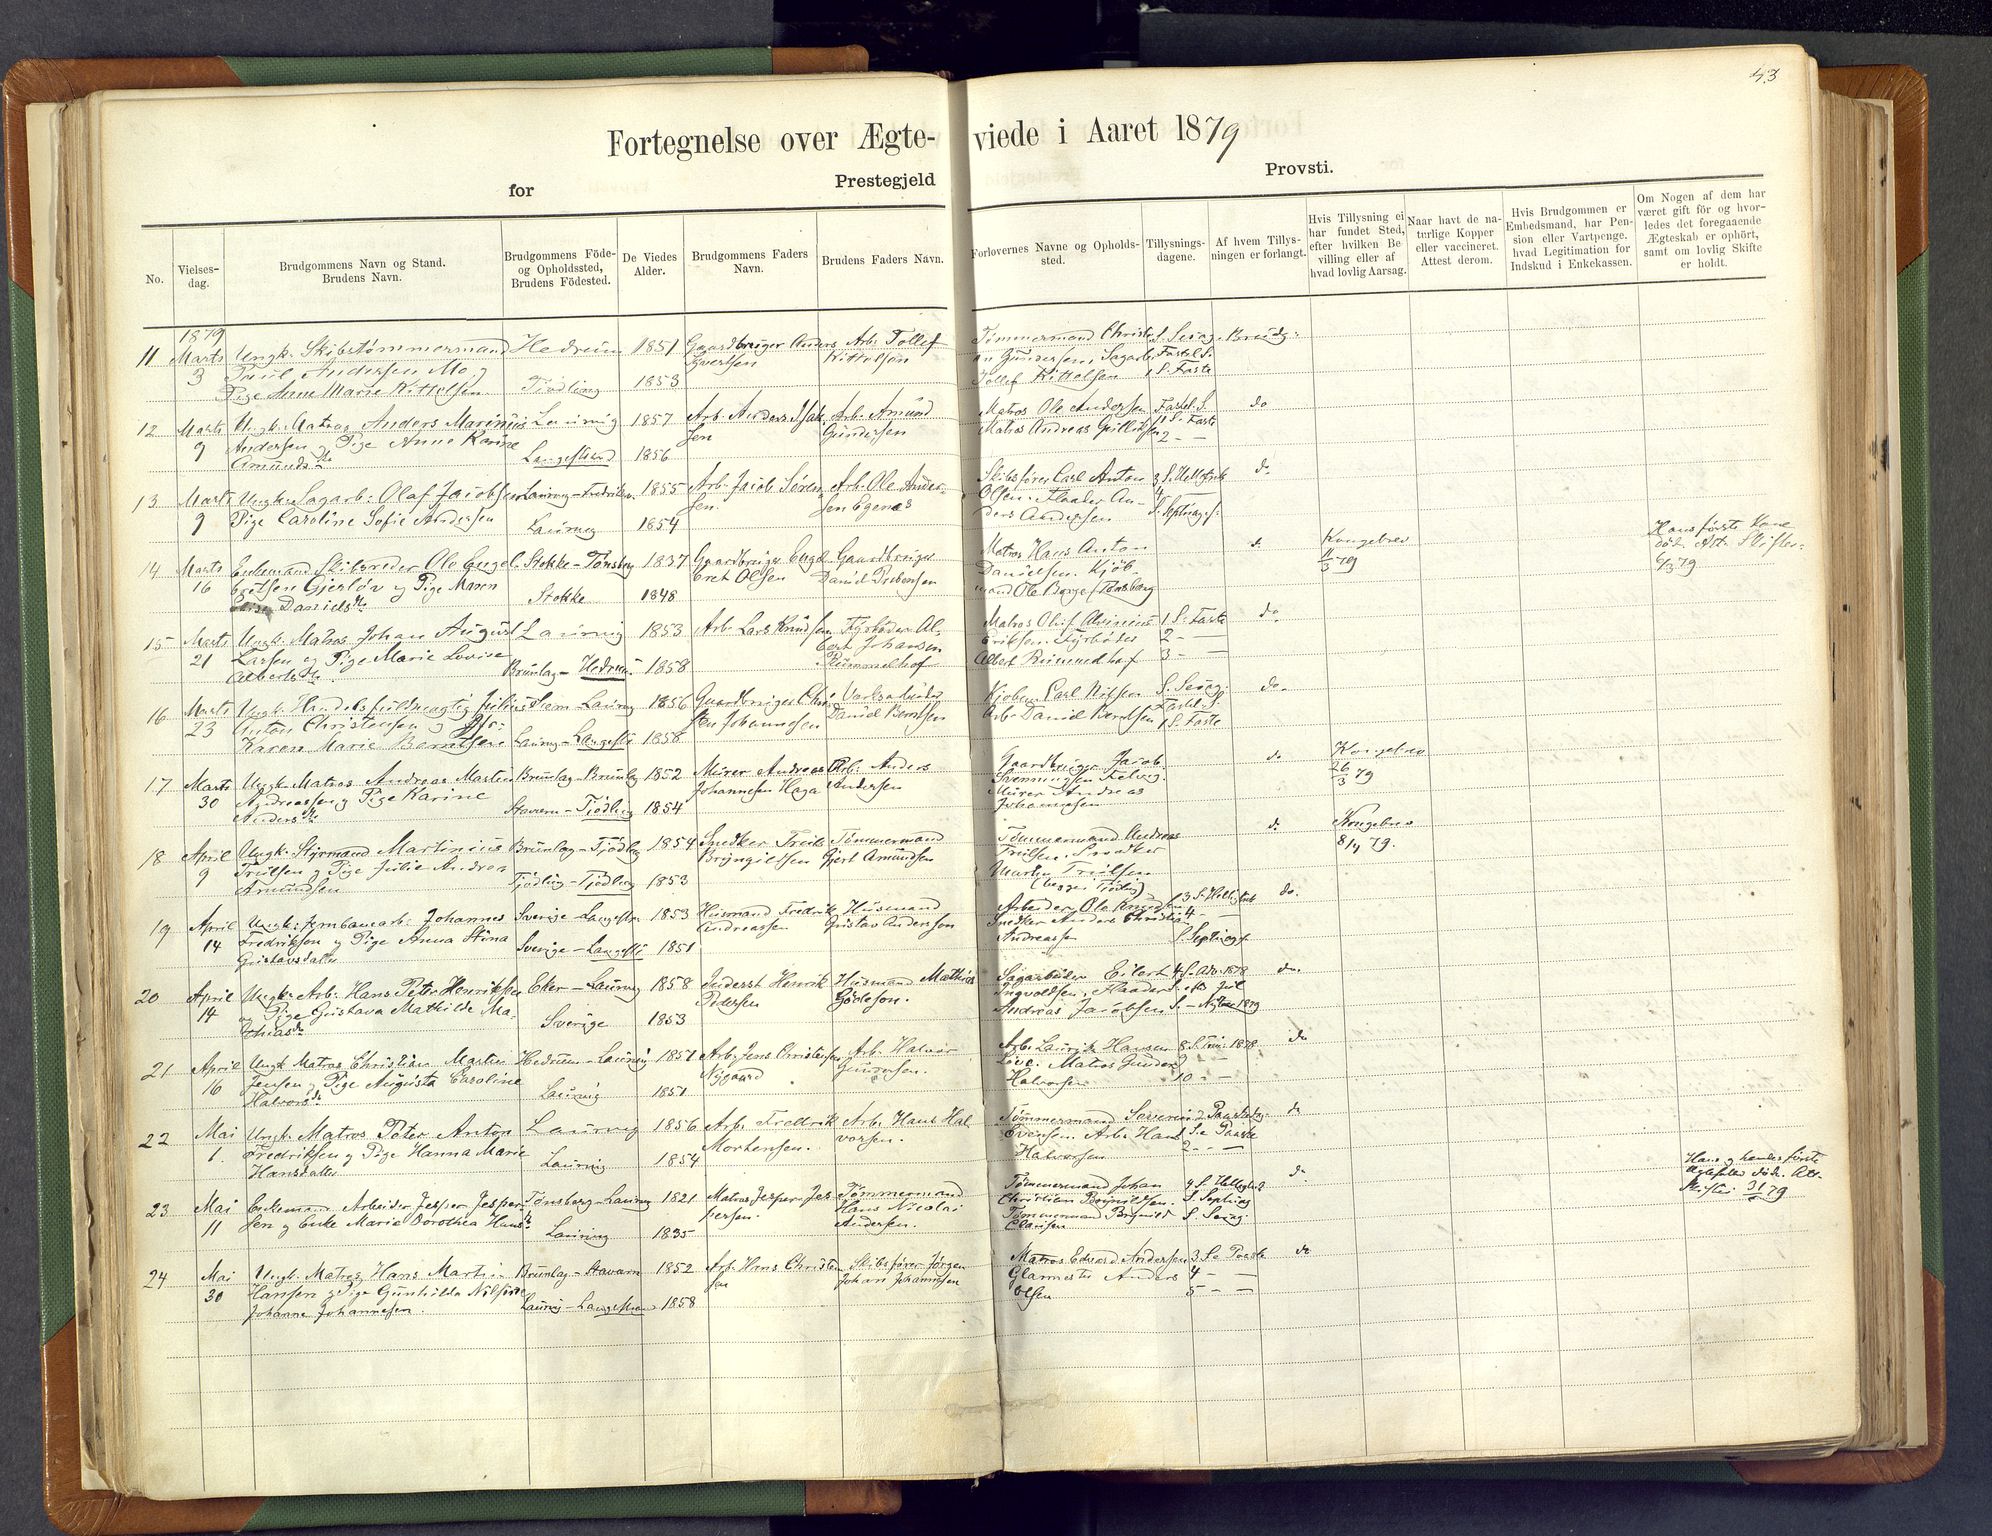 43
Fortegnelse over Ægte- viede i Aaret 1879
for Prestegjeld Provsti.
No.
Vielses-
dag.
Brudgommens Navn og Stand.
Brudens Navn.
Brudgommens Föde-
og Opholdssted,
Brudens Födested.
De Viedes
Alder.
Brudgommens Faders
Navn.
Brudens Faders Navn.
Forlovernes Navne og Opholds-
sted.
Tillysnings-
dagene.
Af hvem Tillys-
ningen er forlangt.
Hvis Tillysning ei
har fundet Sted,
efter hvilken Be-
villing eller af
hvad lovlig Aarsag.
Naar havt de na-
terlige Kopper
eller vaccineret.
Attest derom.
Hvis Brudgommen er
Embedsmand, har Pen-
sion eller Vartpenge.
hvad Legitimation for
Indskud i Enkekassen.
Om Nogen af dem har
været gift för og hvor-
ledes det foregaaende
Ægteskab er ophört,
samt om lovlig Skifte
er holdt.
1879
11 Marts Ungk. Skibstømmermand Hedrum 1851 Gaardbruger Anders Arb. Tollef Tømmermand Christi S. Sexag. Brudg:
3 Andersen Mo og Evertsen Kittelsen an Gundersen, Sagarb. Fastel. S.
Pige Anne Marie Kittelsen Tjödling 1853 Tollef Kittelsen 1 S. Faste
12 Marts Ungk. Matros Anders Marinius Laurvig 1857 Arb. Anders Isak- Arb. Amund Matros Ole Andersen Fastel. S. do
9 Andersen Pige Anne Karine sen Gundersen Matros Andreas 1 S. Faste
Amundsdtr Langestrand 1856 2 — —
13 Marts Ungk. Sagarb: Olaf Jacobsen Laurvig-Fredriksv. 1855 Arb. Jacob Sören- Arb. Ole Ander- Skibsförer Carl Anton 3 S. do
9 Pige Caroline Sofie Andersen sen. sen Egenes Olsen. Flaader An- 4
Laurvig 1854 ders Andersen S. Septuag.
14 Marts Enkemand Skibsreder Ole Engel- Stokke-Tönsberg 1837 Gaardbruger Engel- Gaardbruger Matros Hans Anton d. Kongebrev Hans første Kone
16 bretsen Gjerlöv og Pige Maren bret Olsen Daniel Danielsen. Kjöb- 11/3 79 död. Att. Skifter
Elise Danielsdtr Stokke 1848 mand Ole Borge Tönsberg 6/3 79
15 Marts Ungk. Matros Johan August Laurvig 1853 Arb. Lars Knudsen Fyrböder Al- Matros Oluf 1 S. Faste do
21 Larsen og Pige Marie Lovise bert Johansen Eriksen. Fyrböder 2 —
Albertsdtr. Brunlag-Hedrum 1858 Rummelhof Albert Rummelhof 3 —
16 Marts Ungk. Handelsfuldmægtig Julius Hem-Laurvig 1856 Gaardbruger Chris- Daniel Berntsen Kjöbm. Carl Nilsen S. Sexag. do.
23 Anton Christensen og Pige ten Johannesen Arb. Daniel Berntsen Fastel. S.
Karen Marie Berntsen Laurvig-Langestr. 1858 1 S. Faste
17 Marts Ungk. Matros Andreas Martin Brunlag-Brunlag 1852 Murer Andreas Arb. Anders Gaardbruger Jacob do Kongebrev
30 Andreassen og Pige Karine Johannesen Haga Andersen Svenningsen 26/3 79
Andersdtr Stavern-Tjödling 1854 Murer Andreas
Johannesen
18 April Ungk. Styrmand Martinius Brunlag-Tjödling 1854 Snedker Truls Tömmermand Tömmermand Andreas d. Kongebrev
9 Trulsen og Pige Julie Andrea Bryngilssen Gjert Amundsen Trulsen. Snedker 8/4 79.
Amundsen Tjödling-Tjödling 1853 Martin Trulsen
(begge Tjödling)
19 April Ungk. Jernbanearb. Johannes Sverige-Langestr. 1853 Husmand Fredrik Husmand Arbeider Ole Knudsen 3 S. do.
14 Fredriksen og Pige Anna Stina Andreassen Gustav Anderson Snedker Anders Christian 4
Gustavsdatter Sverige-Langestr. 1851 Andreassen S. Septuag.
20 April Ungk. Arb. Hans Peter Henriksen Eker-Laurvig 1858 Inderst Henrik Husmand Mathias Sagarbeider Eilert 4 S. Adv. 1878 do.
14 og Pige Gustava Mathilde Ma- Pedersen Gödeson. Ingvoldsen, Flaader S. eft. Jul
thiasdtr Sverige 1853 Andreas Jacobsen S. — Nytaar 1879
21 April Ungk. Matros Christian Martin Hedrum-Laurvig 1851 Arb. Jens Christensen Arb. Halvor Arb. Laurits Hansen 8 S. Trin. 1878 do
16 Jensen og Pige Augusta Caroline Nygaard Löve. Matros Gunder 9
Halvorsdtr Laurvig 1851 Halvorsen 10 — —
22 Mai Ungk. Matros Peter Anton Laurvig 1856 Arb. Fredrik Arb. Hans Hal- Tömmermand Severin 2 Paaskedag do
1. Fredriksen og Pige Hanna Marie Mortensen. vorsen. Evensen. Arb. Hans 1 S. e Paaske
Hansdatter Laurvig 1854 Halvorsen 2 — —
23 Mai Enkemand Arbeider Jesper Jesper- Tönsberg-Laurvig 1821 Matros Jesper Jes- Tömmermand Tömmermand Johan 4 S. do Hans og hendes første
11 sen og Enke Marie Dorothea Hansdtr. persen. Hans Nicolai Christian Bryngildsen. S. Septuag. Ægtefeller döde. Att.
Laurvig 1835 Andersen. Tömmermand S. Sexag. Skifte
Clausen
24 Mai Ungk. Matros Hans Martin Brunlag-Stavern 1852 Arb. Hans Christen- Skibsförer Jörgen Matros Edvard Andersen 3 S. e Paaske do
30 Hansen og Pige Gunhilda sen Johan Johannesen Glarmester Anders 4 — —
Johanne Johannesen. Laurvig-Langestrand 1858 Olsen 5 — —